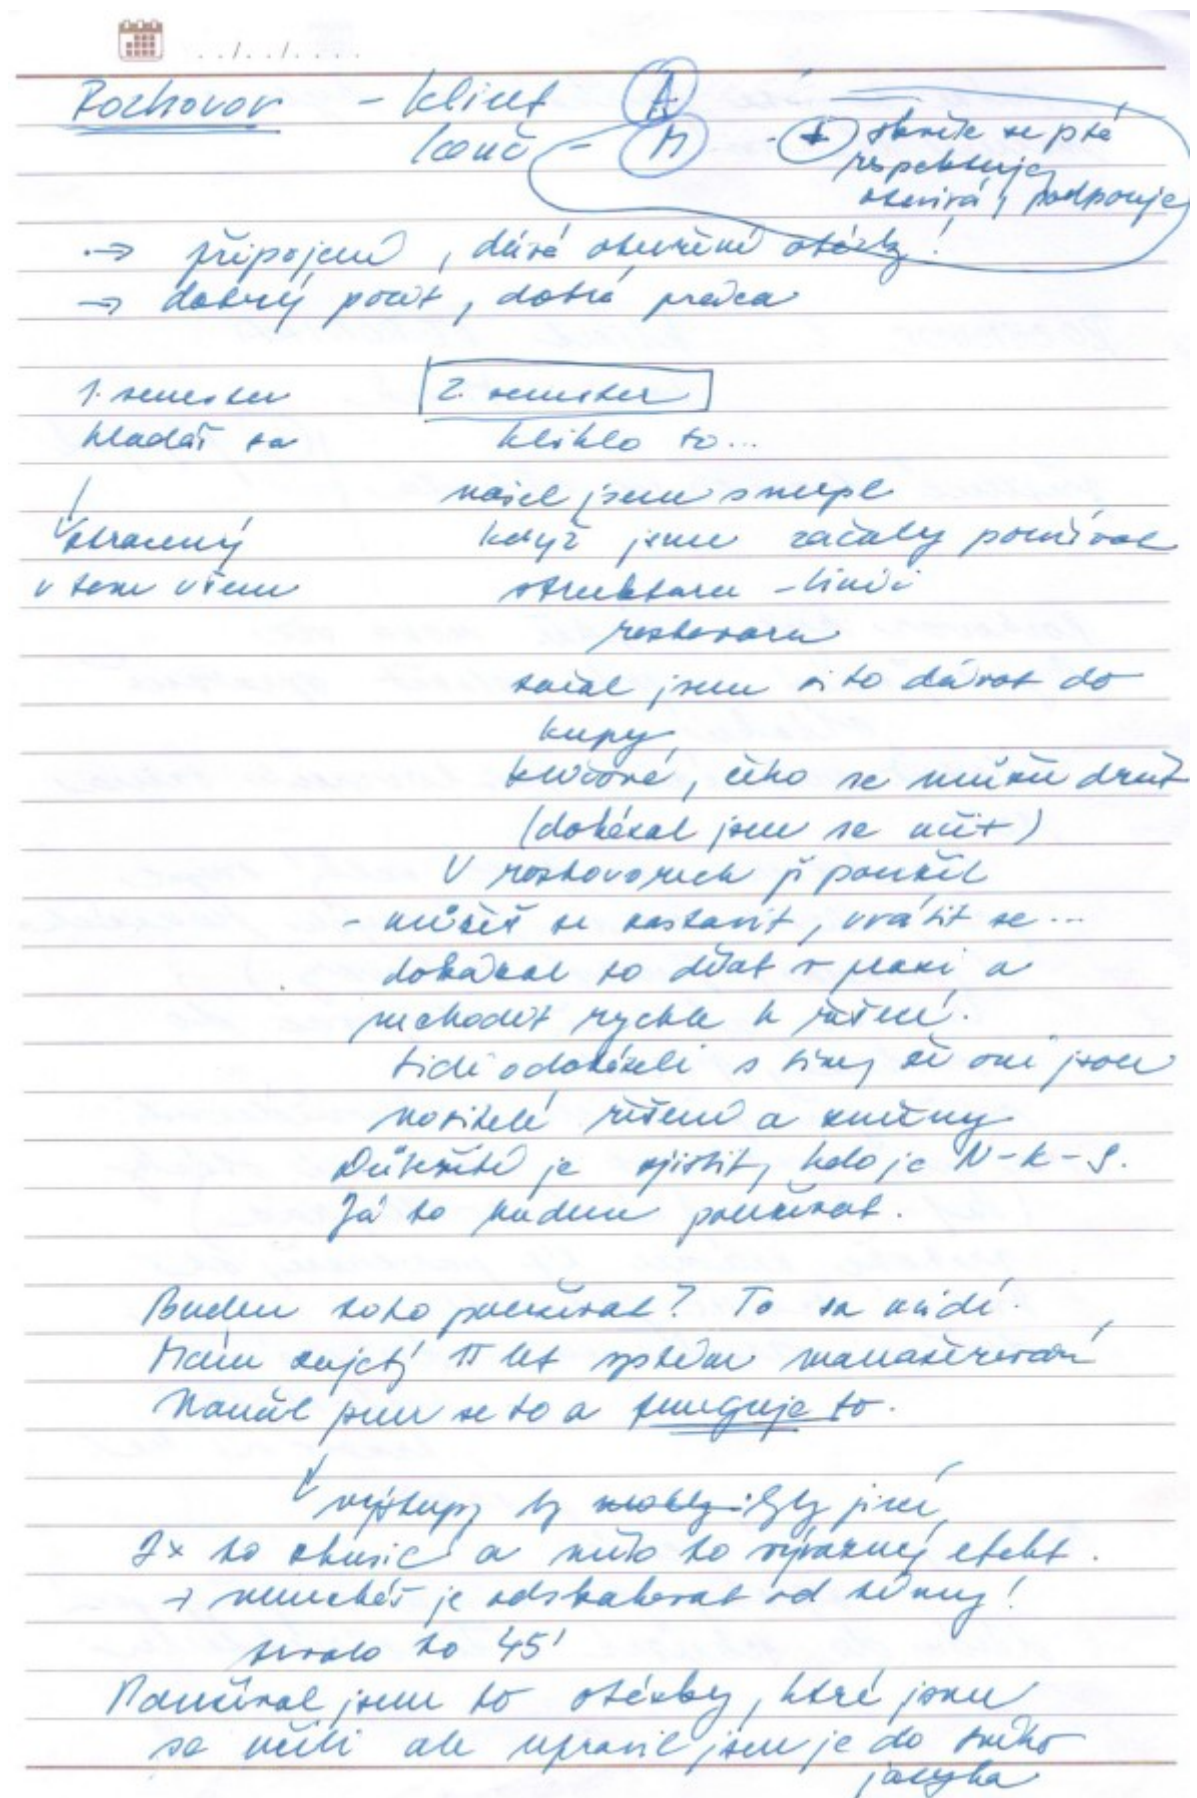 Rozhovor - klient A
kouč - M - + skvěle se ptá
respektuje,
otevírá, podporuje
→ připojení, dává otevřené otázky!
→ dobrý pocit, dobrá práca
1. semester 2. semester
hladáš sa kliklo to...
našel jsem smysl
ztracený když jsme začaly používat
v tom všem strukturu - linii
rozhovoru
začal jsem si to dávat do
kupy
klíčové, čeho se můžu držet
(dokázal jsem se učit)
V rozhovorech ji použil
- můžeš se zastavit, vrátit se...
dokázal to dělat v praxi a
nechodit rychle k řešení.
Lidi odcházeli s tím, že oni jsou
nositelé řešení a změny
Důležité je zjistit, kdo je N-K-S.
Já to budu používat.
Budem toho používat? To sa uvidí.
Mám zajetý 11 let systém manažérování
Naučil jsem se to a funguje to.
výstupy by byly jiné,
2x to zkusic a mělo to výrazný efekt.
→ nenecháš je odskakovat od témy!
trvalo to 45'
Používal jsem to otázky, které jsme
se učili ale upravil jsem je do svého
jazyka